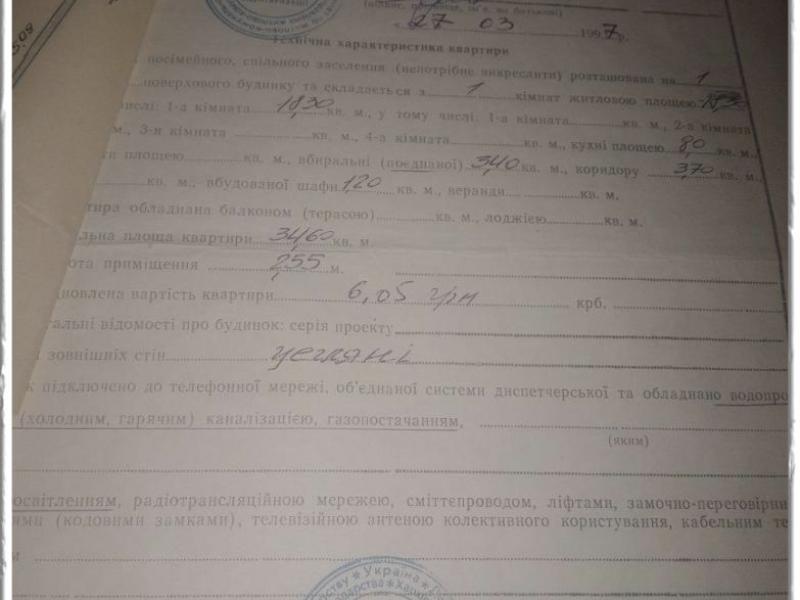 (підпис, прізвище, ім'я, по батькові)
27 03 1997р.
Технічна характеристика квартири
посімейного, спільного заселення (непотрібне викреслити) розташована на 1
поверхового будинку та складається з 1 кімнат житловою площею 18,30
числі: 1-а кімната 18,30 кв. м., у тому числі: 1-а кімната кв. м., 2-а кімната
м., 3-я кімната кв. м., 4-а кімната кв. м., кухні площею 8,0 кв. м.,
ти площею кв. м., вбиральні (поєднаної) 3,40 кв. м., коридору 3,70 кв. м.,
кв. м., вбудованої шафи 1,20 кв. м., веранди кв. м.
тира обладнана балконом (терасою) кв. м., лоджією кв. м.
льна площа квартири 34,60 кв. м.
ота приміщення 2,55 м.
новлена вартість квартири 6,05 грн крб.
гальні відомості про будинок: серія проекту
зовнішніх стін цегляні
к підключено до телефонної мережі, об'єднаної системи диспетчерської та обладнано водопро
(холодним, гарячим) каналізацією, газопостачанням,
(яким)
освітленням, радіотрансляційною мережею, сміттєпроводом, ліфтами, замочно-переговірни
ями (кодовими замками), телевізійною антеною колективного користування, кабельним те
м
Україна